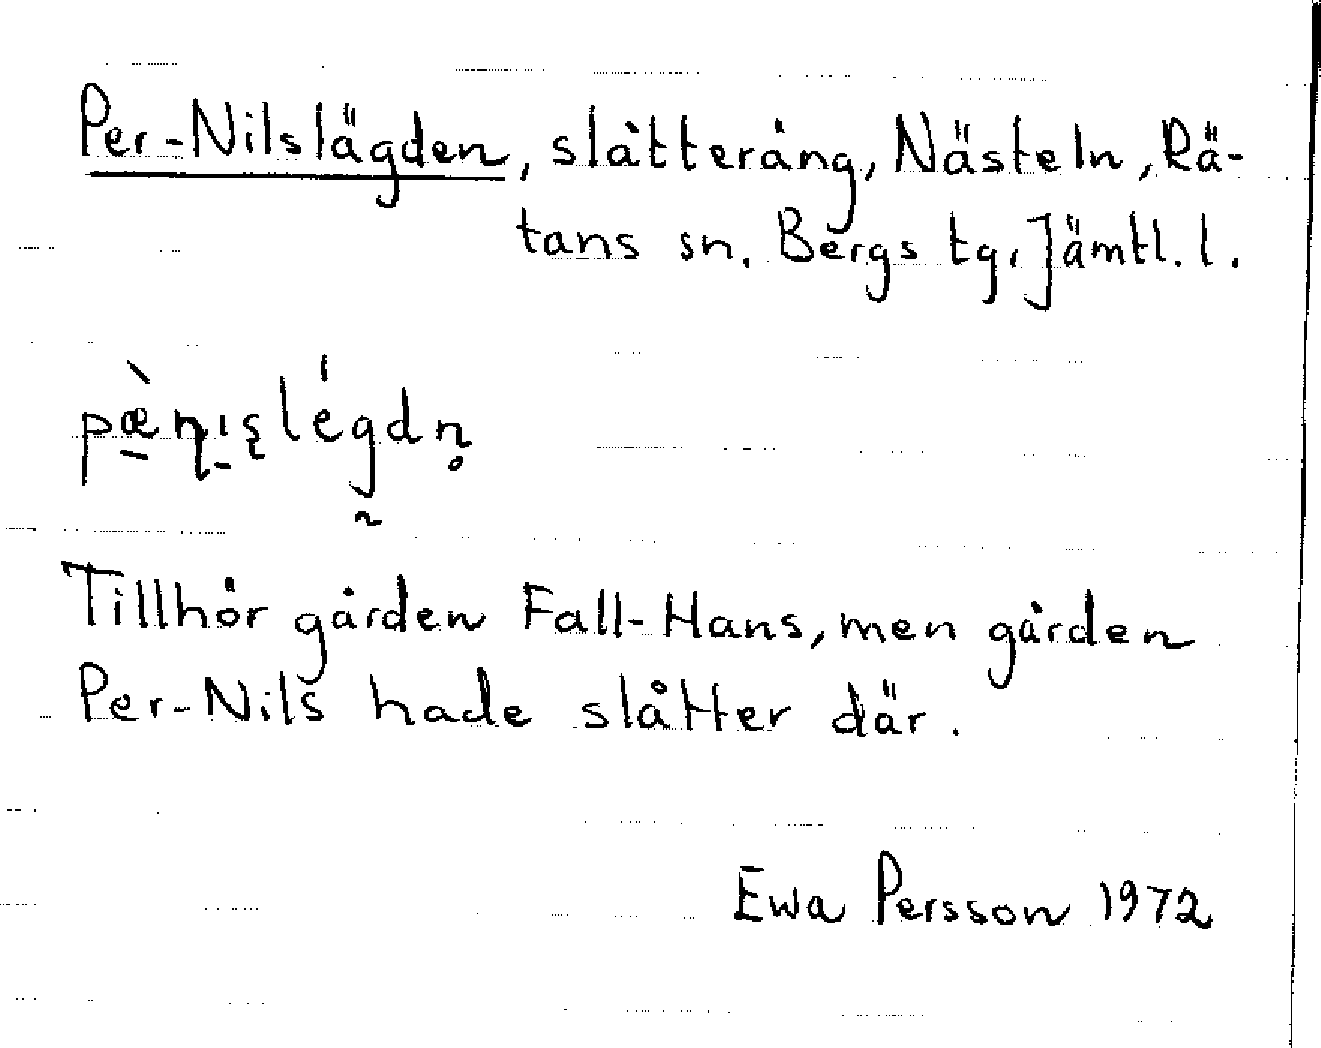 Per-Nilslägden, slåtteräng, Nästeln, Rä-
tans sn. Bergs tg, Jämtl. l.
pæ̠̀ɳı̠ʂlégdn̥
Tillhör gården Fall-Hans, men gården
Per-Nils hade slåtter där.
Ewa Persson 1972